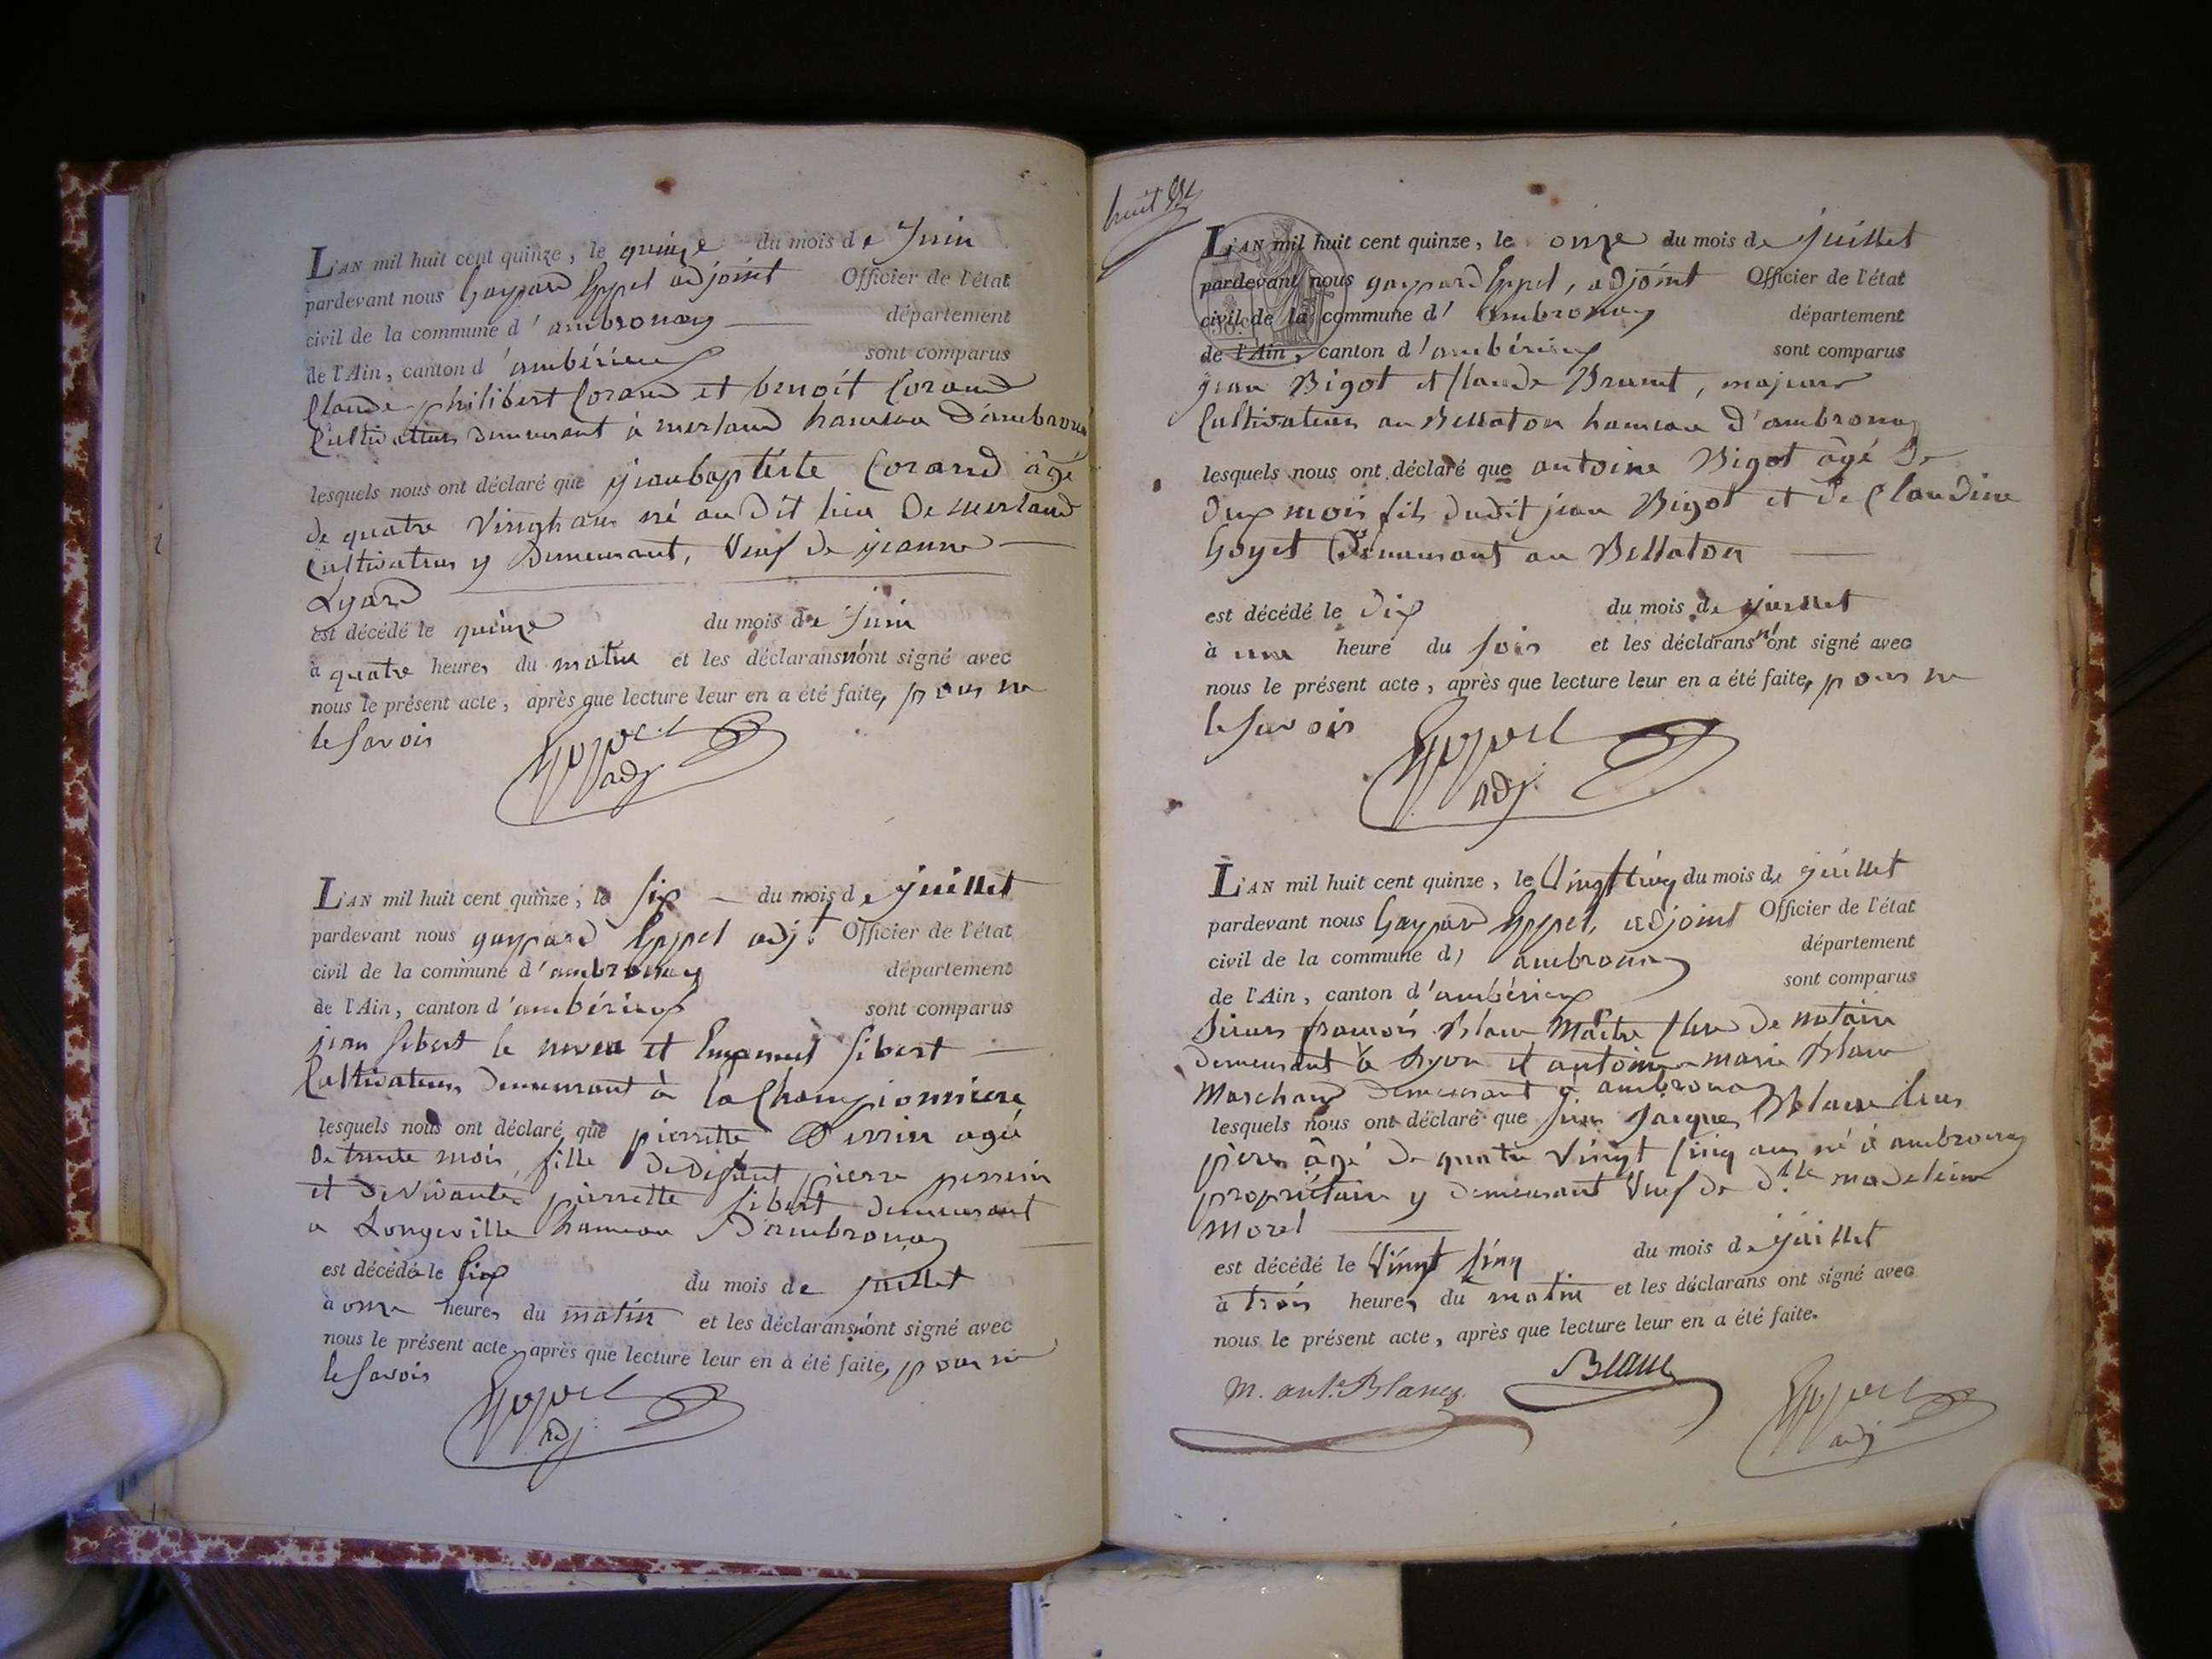 L'AN mil huit cent quinze, le quinze du mois de Juin
pardevant nous Gaspard Eppel adjoint Officier de l'état
civil de la commune d'ambronay département
de l'Ain, canton d'ambérieux sont comparus
Claude philibert Corand et benoît Corand
Cultivateurs demeurant à merland hameau d'ambronay
lesquels nous ont déclaré que jeanbaptiste Corand âgé
de quatre vingt ans né au dit lieu de merland
Cultivateur y demeurant, Veuf de jeanne
Lyard
est décédé le quinze du mois de Juin
à quatre heures du matin et les déclarans n'ont signé avec
nous le présent acte, après que lecture leur en a été faite, pour ne
le savoir
Eppel
adj
L'AN mil huit cent quinze, le six du mois de juillet
pardevant nous gaspard Eppel adjt Officier de l'état
civil de la commune d'ambronay département
de l'Ain, canton d'ambérieux sont comparus
jean sibert le neveu et Emanuel sibert
Cultivateurs demeurant à la Championniere
lesquels nous ont déclaré que pierrette Perrin agée
de trente mois, fille de defunt pierre perrin
et de vivante pierrette sibert demeurant
a Longeville hameau d'ambronay
est décédée le six du mois de juillet
à onze heures du matin et les déclarans n'ont signé avec
nous le présent acte, après que lecture leur en a été faite, pour ne
le savoir
Eppel
adj
huit
L'AN mil huit cent quinze, le onze du mois de juillet
pardevant nous gaspard Eppel, adjoint Officier de l'état
civil de la commune d'ambronay département
de l'Ain, canton d'ambérieux sont comparus
jean Bigot et Claude Brunet, majeurs
Cultivateurs au Bellaton hameau d'ambronay
lesquels nous ont déclaré que antoine Bigot âgé de
deux mois fils dudit jean Bigot et de Claudine
Goyet demeurant au Bellaton
est décédé le dix du mois de juillet
à une heure du soir et les déclarans n'ont signé avec
nous le présent acte, après que lecture leur en a été faite, pour ne
le savoir
Eppel
adj.
L'AN mil huit cent quinze, le Vingt cinq du mois de juillet
pardevant nous Gaspard Eppel, adjoint Officier de l'état
civil de la commune d'ambronay département
de l'Ain, canton d'ambérieux sont comparus
Sieurs françois Blanc Maître Clerc de notaire
demeurant à Lyon et antoine marie Blanc
Marchand demeurant à ambronay
lesquels nous ont déclaré que Sieur Jacques Blanc leur
père, âgé de quatre Vingt cinq ans né à ambronay
propriétaire y demeurant Veuf de d.lle madeleine
Morel
est décédé le Vingt cinq du mois de juillet
à trois heures du matin et les déclarans ont signé avec
nous le présent acte, après que lecture leur en a été faite.
M. ant.e Blanc Blanc Eppel
adj